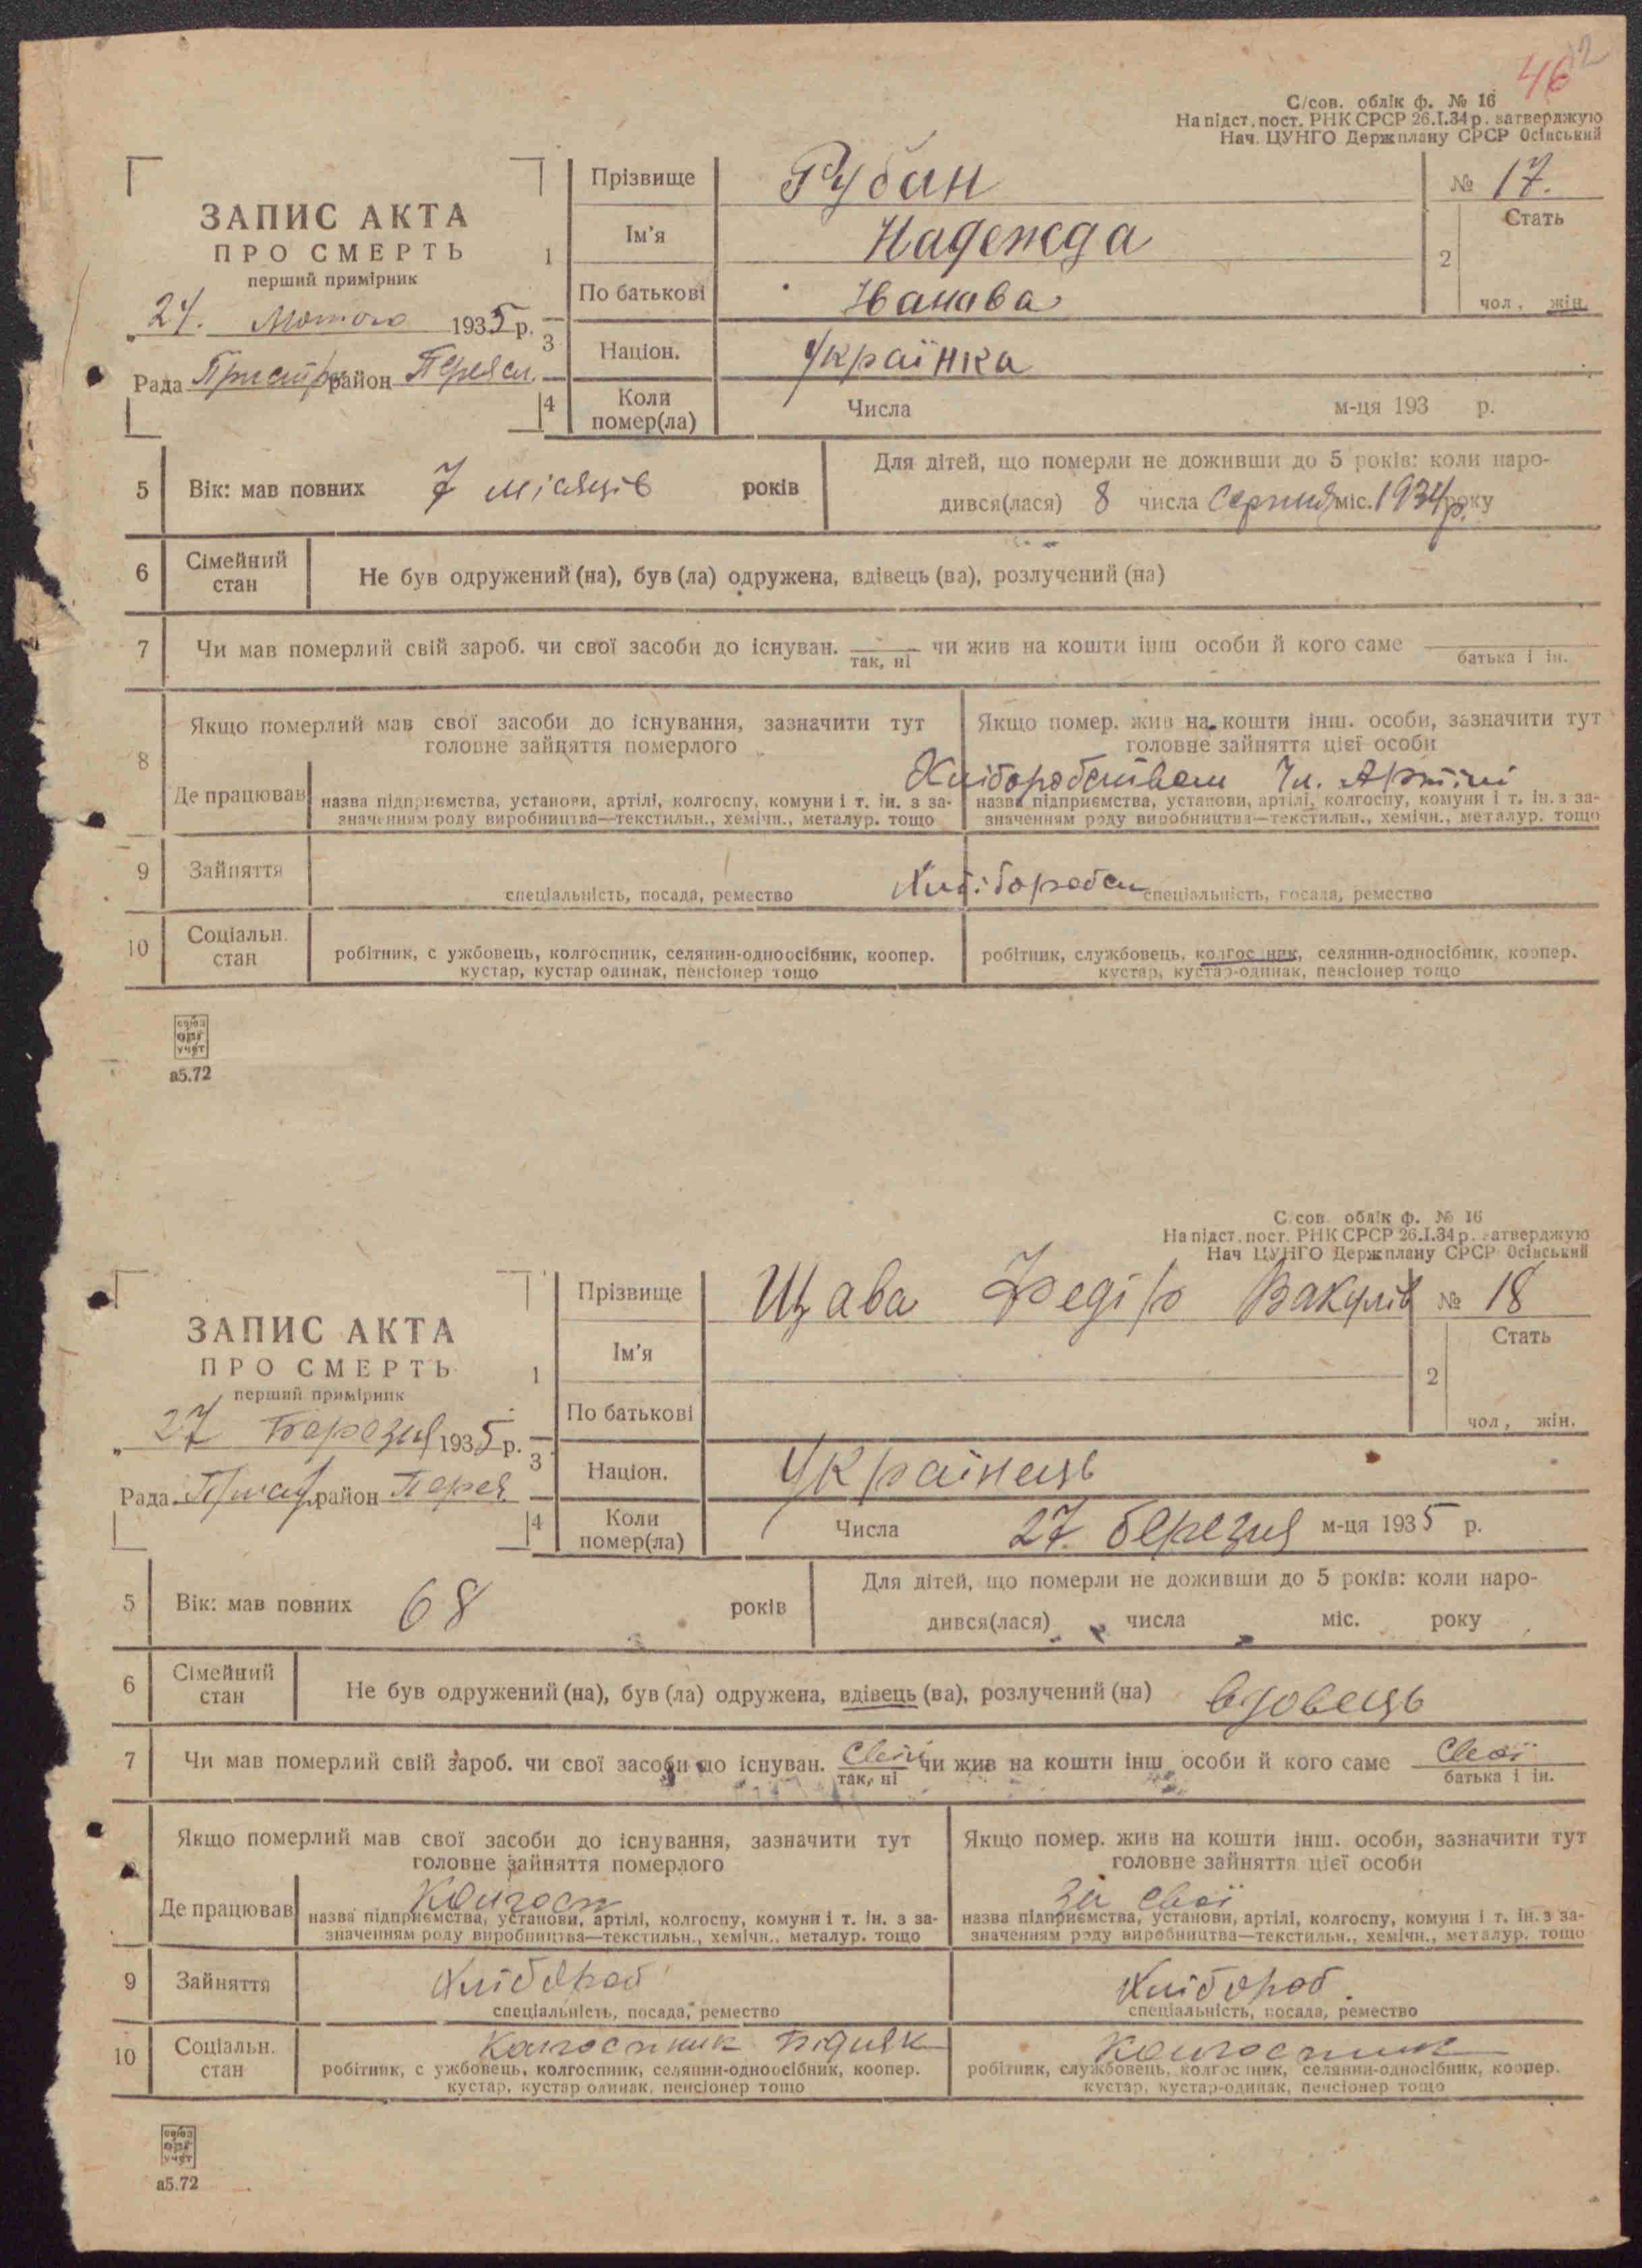 46
С/сов. облік ф. № 16
На підст. пост. РНК СРСР 26.I.34 р. затверджую
Нач. ЦУНГО Держплану СРСР Осінський
ЗАПИС АКТА
ПРО СМЕРТЬ
перший примірник
„ 24. Лютого 1935 р.
Рада район Переясл.
1 Прізвище Рубан № 17.
Ім'я Надежда
По батькові Іванова
2 Стать
чол. жін.
3 Націон. Українка
4 Коли помер(ла) Числа м-ця 193 р.
5 Вік: мав повних 7 місяців років
Для дітей, що померли не доживши до 5 років: коли наро-
дився(лася) 8 числа Серпня міс. 1934 р. року
6 Сімейний стан Не був одружений (на), був (ла) одружена, вдівець (ва), розлучений (на)
7 Чи мав померлий свій зароб. чи свої засоби до існуван. чи жив на кошти інш особи й кого саме
так, ні батька і ін.
8 Якщо померлий мав свої засоби до існування, зазначити тут
головне зайняття померлого
Якщо помер. жив на кошти інш. особи, зазначити тут
головне зайняття цієї особи
Хліборобством Артілі
Де працював назва підприємства, установи, артілі, колгоспу, комуни і т. ін. з за-
значенням роду виробництва—текстильн., хемічн., металур. тощо
назва підприємства, установи, артілі, колгоспу, комуни і т. ін. з за-
значенням роду виробництва—текстильн., хемічн., металур. тощо
9 Зайняття
спеціальність, посада, ремество спеціальність, посада, ремество
10 Соціальн. стан робітник, с ужбовець, колгоспник, селянин-одноосібник, коопер.
кустар, кустар одинак, пенсіонер тощо
робітник, службовець, колгос ник, селянин-односібник, коопер.
кустар, кустар-одинак, пенсіонер тощо
союз
орг
учёт
а5.72
С сов облік ф. № 16
На підст. пост. РНК СРСР 26.I.34 р. затверджую
Нач ЦУНГО Держплану СРСР Осінський
ЗАПИС АКТА
ПРО СМЕРТЬ
перший примірник
„ 27 Березня 1935 р.
Рада район Перея.
1 Прізвище Щава Федір Вакулів № 18
Ім'я
По батькові
2 Стать
чол, жін.
3 Націон. Українець
4 Коли помер(ла) Числа 27. березня м-ця 1935 р.
5 Вік: мав повних 68 років
Для дітей, що померли не доживши до 5 років: коли наро-
дився(лася) числа міс. року
6 Сімейний стан Не був одружений (на), був (ла) одружена, вдівець (ва), розлучений (на) вдовець
7 Чи мав померлий свій зароб. чи свої засоби до існуван. Свої чи жив на кошти інш особи й кого саме Свої
так, ні батька і ін.
Якщо померлий мав свої засоби до існування, зазначити тут
головне зайняття померлого
Якщо помер. жив на кошти інш. особи, зазначити тут
головне зайняття цієї особи
Колгосп За свої
Де працював назва підприємства, установи, артілі, колгоспу, комуни і т. ін. з за-
значенням роду виробництва—текстильн., хемічн., металур. тощо
назва підприємства, установи, артілі, колгоспу, комуни і т. ін. з за-
значенням роду виробництва—текстильн., хемічн., металур. тощо
9 Зайняття Хлібороб Хлібороб.
спеціальність, посада, ремество спеціальність, посада, ремество
10 Соціальн. стан Колгоспник Бідняк Колгоспник
робітник, с ужбовець, колгоспник, селянин-одноосібник, коопер.
кустар, кустар одинак, пенсіонер тощо
робітник, службовець, колгос ник, селянин-односібник, коопер.
кустар, кустар-одинак, пенсіонер тощо
союз
орг
учёт
а5.72